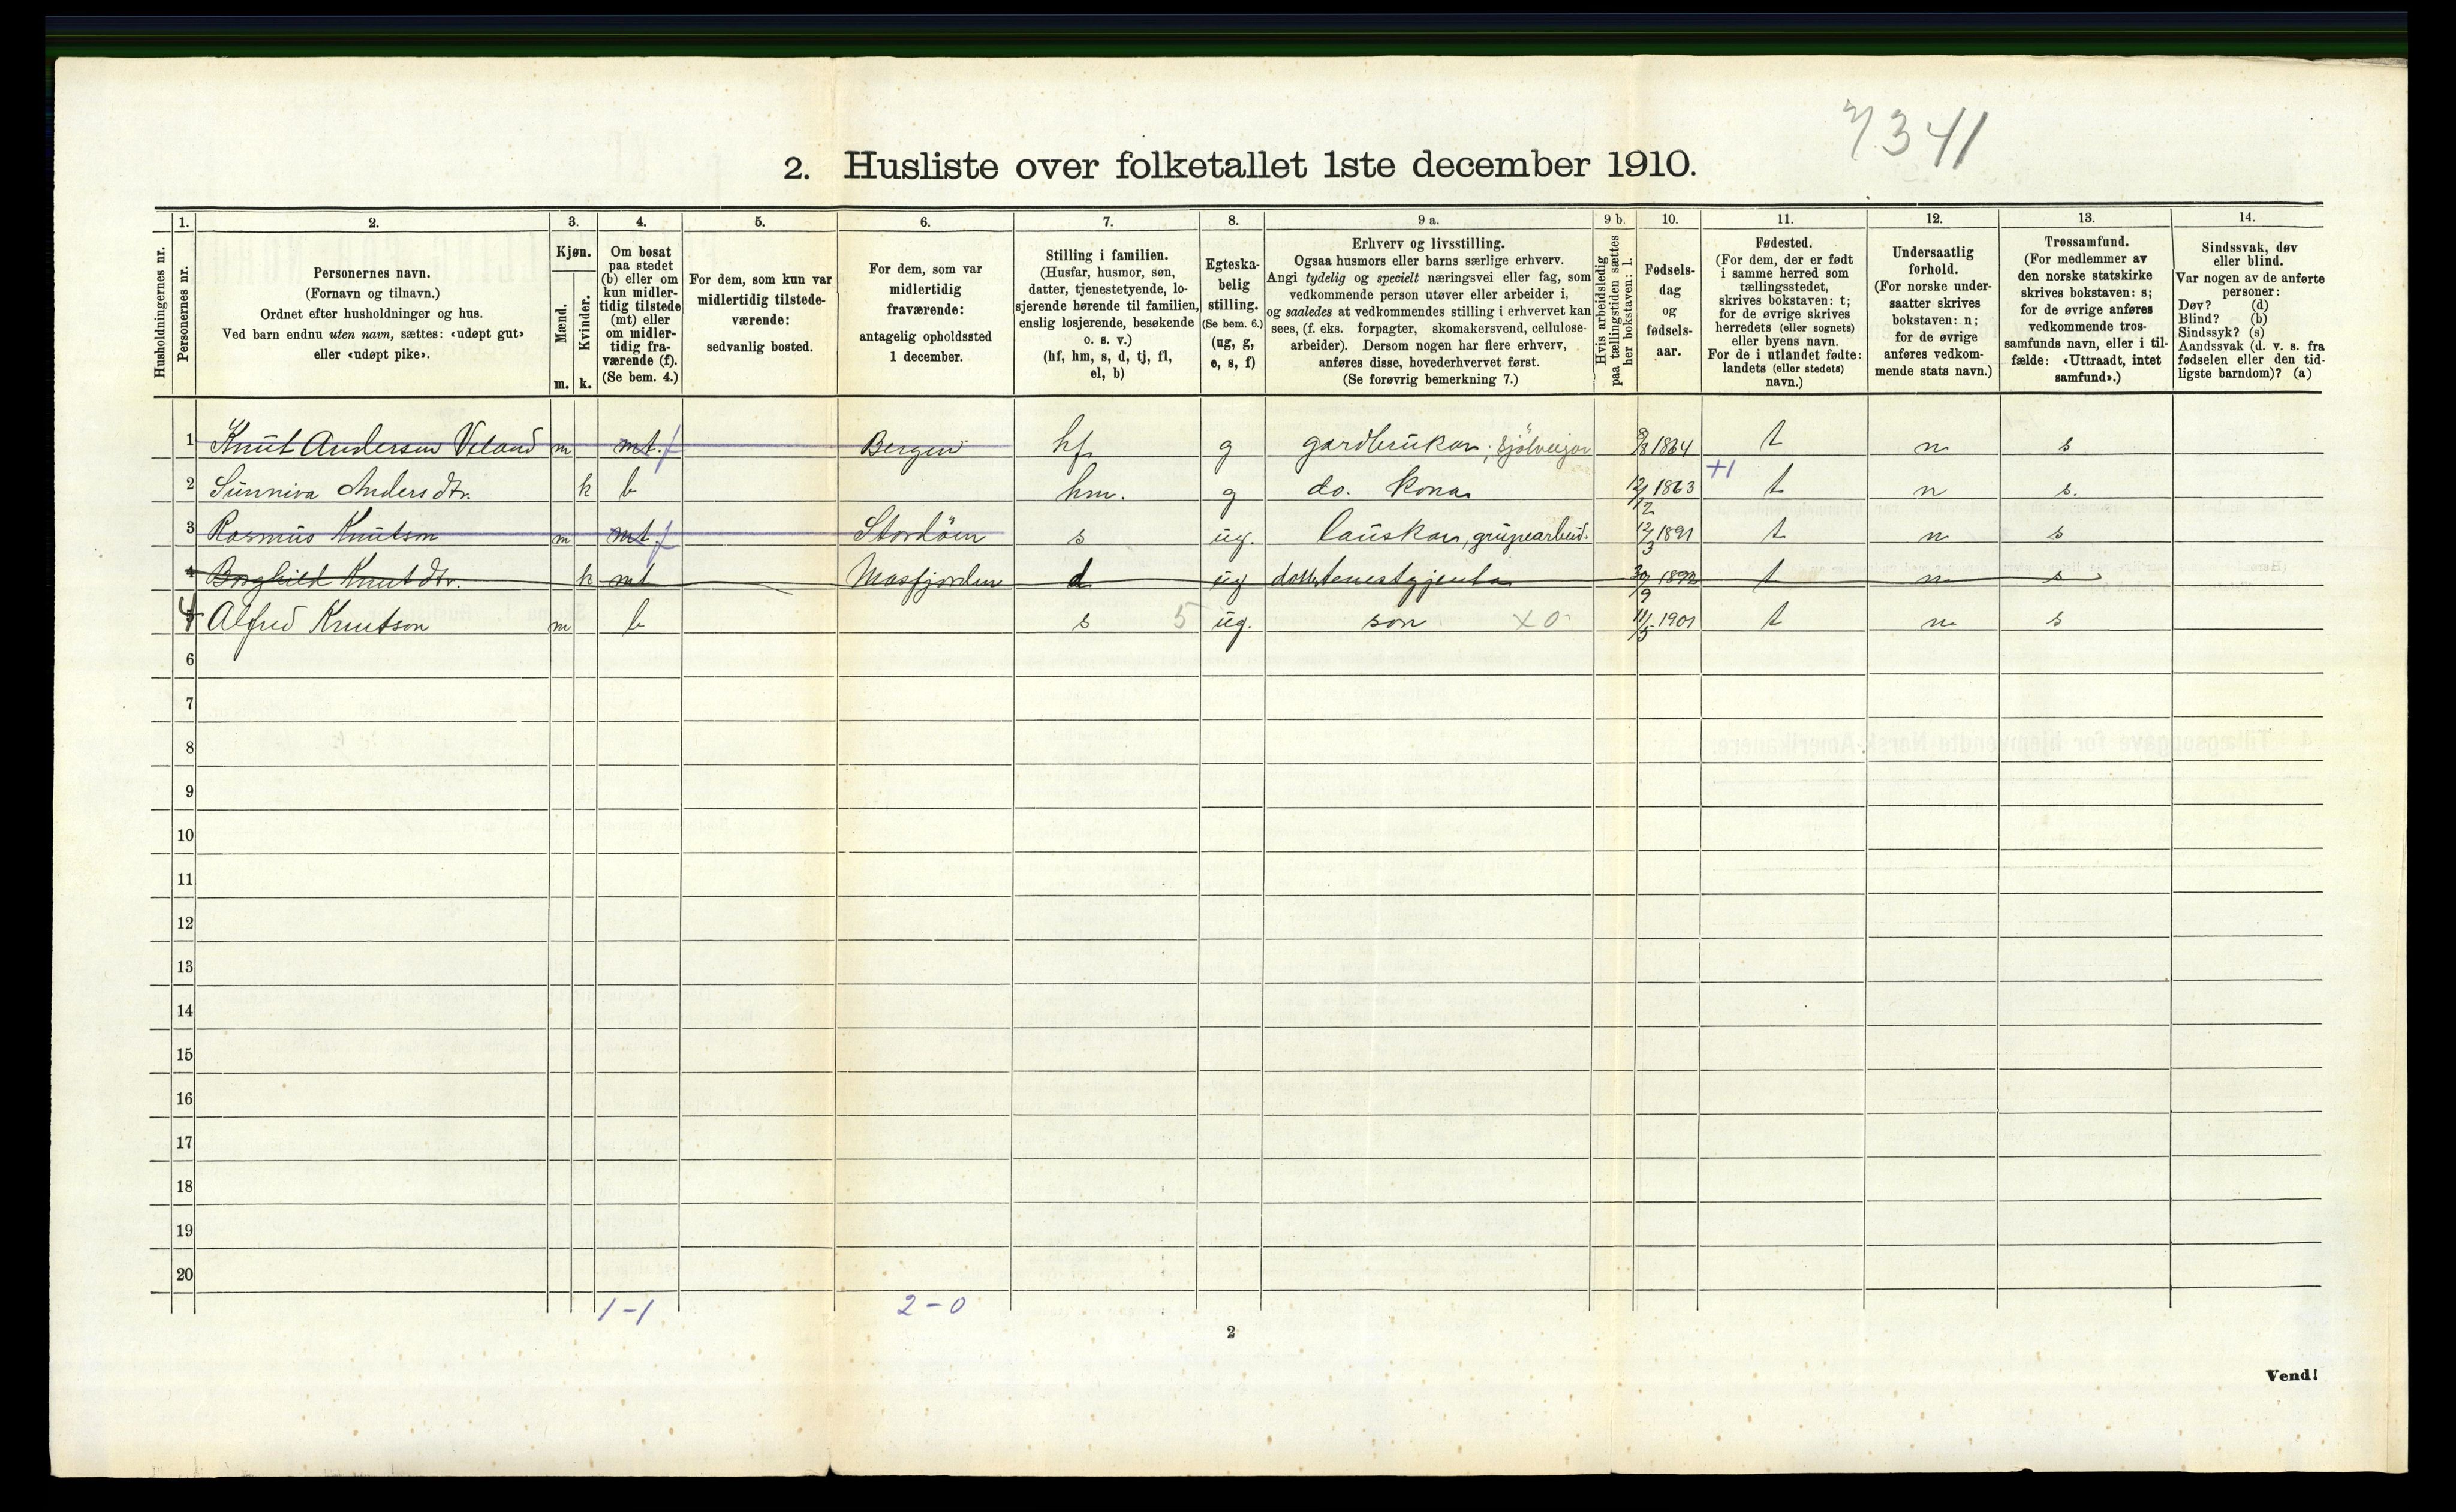 7341
2. Husliste over folketallet 1ste december 1910.
Husholdningernes nr.
1. Personernes nr.
2. Personernes navn. (Fornavn og tilnavn.) Ordnet efter husholdninger og hus. Ved barn endnu uten navn, sættes: «udøpt gut» eller «udøpt pike».
3. Kjøn. Mænd. m. Kvinder. k.
4. Om bosat paa stedet (b) eller om kun midlertidig tilstede (mt) eller om midlertidig fraværende (f). (Se bem. 4.)
5. For dem, som kun var midlertidig tilstedeværende: sedvanlig bosted.
6. For dem, som var midlertidig fraværende: antagelig opholdssted 1 december.
7. Stilling i familien. (Husfar, husmor, søn, datter, tjenestetyende, losjerende hørende til familien, enslig losjerende, besøkende o. s. v.) (hf, hm, s, d, tj, fl, el, b)
8. Egteskabelig stilling. (Se bem. 6.) (ug, g, e, s, f)
9 a. Erhverv og livsstilling. Ogsaa husmors eller barns særlige erhverv. Angi tydelig og specielt næringsvei eller fag, som vedkommende person utøver eller arbeider i, og saaledes at vedkommendes stilling i erhvervet kan sees, (f. eks. forpagter, skomakersvend, cellulosearbeider). Dersom nogen har flere erhverv, anføres disse, hovederhvervet først. (Se forøvrig bemerkning 7.)
9 b. Hvis arbeidsledig paa tællingstiden sættes her bokstaven: l.
10. Fødselsdag og fødselsaar.
11. Fødested. (For dem, der er født i samme herred som tællingsstedet, skrives bokstaven: t; for de øvrige skrives herredets (eller sognets) eller byens navn. For de i utlandet fødte: landets (eller stedets) navn.)
12. Undersaatlig forhold. (For norske undersaatter skrives bokstaven: n; for de øvrige anføres vedkommende stats navn.)
13. Trossamfund. (For medlemmer av den norske statskirke skrives bokstaven: s; for de øvrige anføres vedkommende trossamfunds navn, eller i tilfælde: «Uttraadt, intet samfund».)
14. Sindssvak, døv eller blind. Var nogen av de anførte personer: Døv? (d) Blind? (b) Sindssyk? (s) Aandssvak (d. v. s. fra fødselen eller den tidligste barndom)? (a)
1 Knut Andersen Veland m mt. f Bergen hf g gardbrukar, sjølveigar 8/8 1864 t n s
2 Sunniva Andersdtr. k b hm. g do. kona 12/12 1863 +1 t n s.
3 Rasmus Knutson m mt f Stordøen s ug. lauskar, grupearbeid. 12/3 1891 t n s
4 Borghild Knutdtr. k mt Masfjorden d ug tenestgjenta 30/9 1892 t n s
4 Alfred Knutson m b s 5 ug. son x0 11/5 1901 t n s
6
7
8
9
10
11
12
13
14
15
16
17
18
19
20
1-1 2-0
2
Vend!